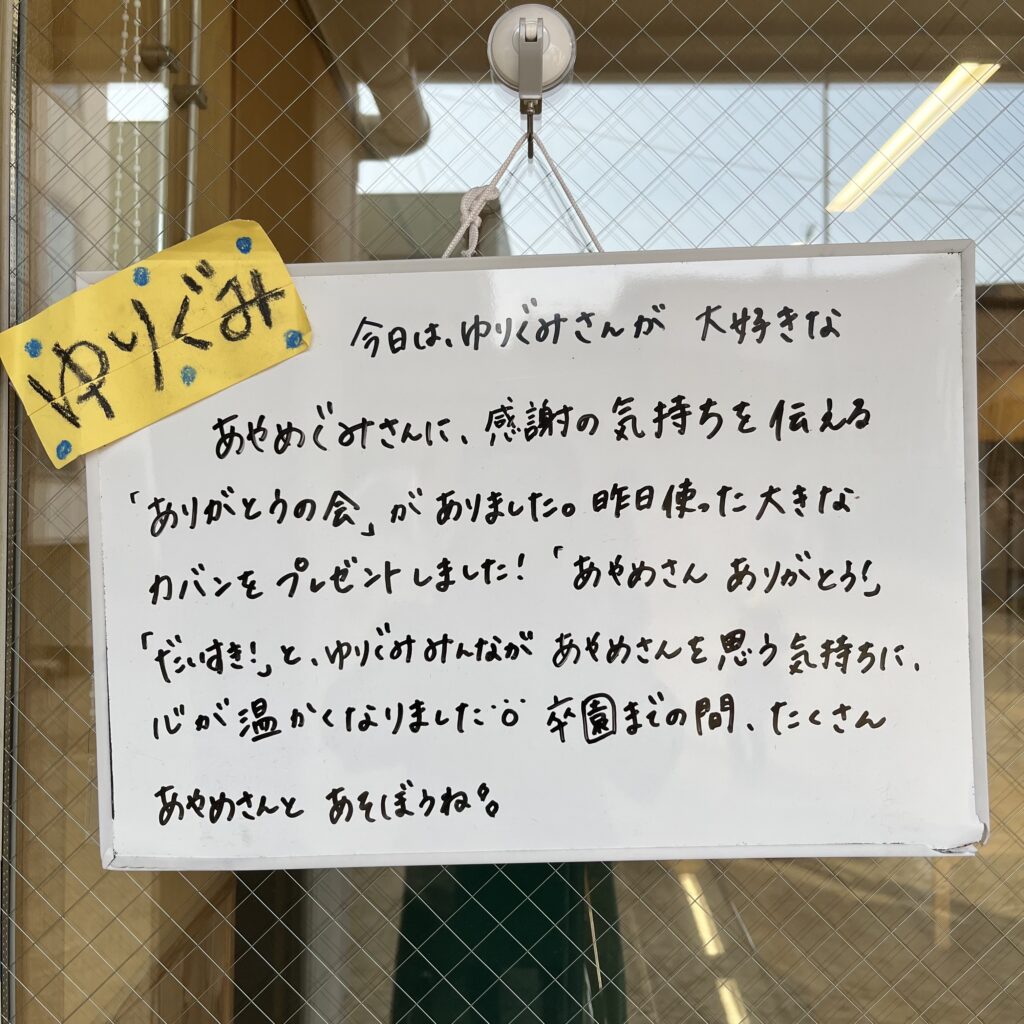 ゆりぐみ
今日は、ゆりぐみさんが 大好きな
あやめぐみさんに、感謝の気持ちを伝える
「ありがとうの会」がありました。昨日使った大きな
カバンをプレゼントしました!「あやめさん ありがとう!」
「だいすき!」と、ゆりぐみみんなが あやめさんを思う気持ちに、
心が温かくなりました 卒園までの間、たくさん
あやめさんと あそぼうね。